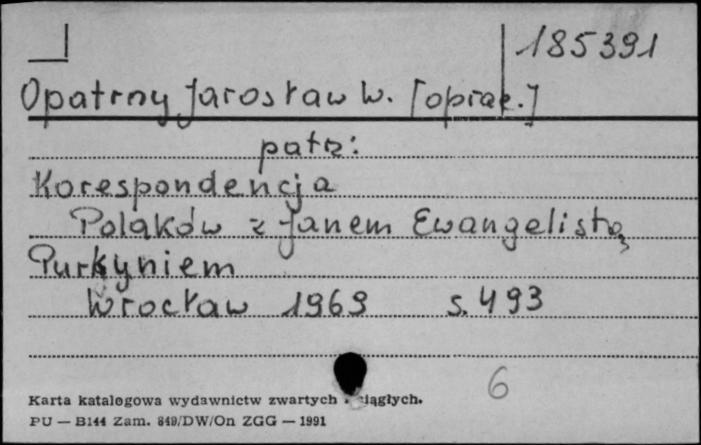 185391
Opatrny Jarosław W. [oprac.]
patrz:
Korespondencja
Polaków z Janem Ewangelistą
Purkyniem
Wrocław 1969 s. 493
6
Karta katalogowa wydawnictw zwartych ciągłych.
PU — B144 Zam. 849/DW/On ZGG — 1991